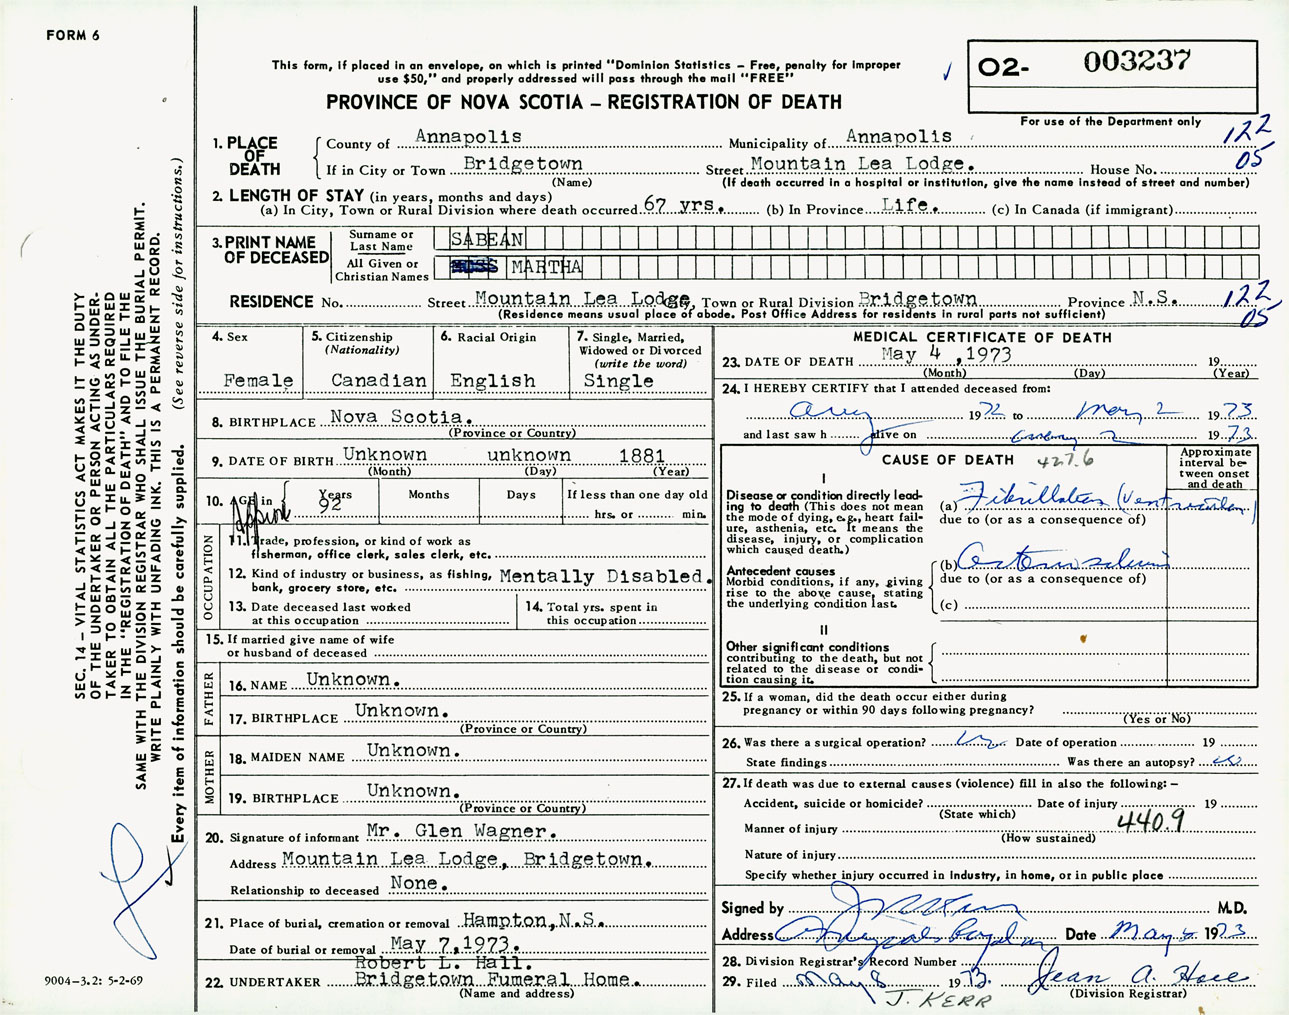 FORM 6
This form, if placed in an envelope, on which is printed "Dominion Statistics – Free, penalty for improper
use $50," and properly addressed will pass through the mail "FREE"
PROVINCE OF NOVA SCOTIA – REGISTRATION OF DEATH
O2- 003237
For use of the Department only
122
05
1. PLACE OF DEATH
County of Annapolis Municipality of Annapolis
If in City or Town Bridgetown Street Mountain Lea Lodge. House No.
(Name) (If death occurred in a hospital or institution, give the name instead of street and number)
2. LENGTH OF STAY (in years, months and days)
(a) In City, Town or Rural Division where death occurred 67 yrs. (b) In Province Life. (c) In Canada (if immigrant)
3. PRINT NAME OF DECEASED
Surname or Last Name SABEAN
All Given or Christian Names MARTHA
RESIDENCE No. Street Mountain Lea Lodge, Town or Rural Division Bridgetown Province N.S.
(Residence means usual place of abode. Post Office Address for residents in rural parts not sufficient)
122
05
4. Sex
Female
5. Citizenship
(Nationality)
Canadian
6. Racial Origin
English
7. Single, Married,
Widowed or Divorced
(write the word)
Single
8. BIRTHPLACE Nova Scotia.
(Province or Country)
9. DATE OF BIRTH Unknown unknown 1881
(Month) (Day) (Year)
10. AGE in Years Months Days If less than one day old
Approx 92 hrs. or min.
OCCUPATION
11. Trade, profession, or kind of work as
fisherman, office clerk, sales clerk, etc.
12. Kind of industry or business, as fishing, Mentally Disabled.
bank, grocery store, etc.
13. Date deceased last worked
at this occupation
14. Total yrs. spent in
this occupation
15. If married give name of wife
or husband of deceased
FATHER
16. NAME Unknown.
17. BIRTHPLACE Unknown.
(Province or Country)
MOTHER
18. MAIDEN NAME Unknown.
19. BIRTHPLACE Unknown.
(Province or Country)
20. Signature of informant Mr. Glen Wagner.
Address Mountain Lea Lodge, Bridgetown.
Relationship to deceased None.
21. Place of burial, cremation or removal Hampton, N.S.
Date of burial or removal May 7, 1973.
Robert L. Hall.
22. UNDERTAKER Bridgetown Funeral Home.
(Name and address)
MEDICAL CERTIFICATE OF DEATH
23. DATE OF DEATH May 4, 1973 19
(Month) (Day) (Year)
24. I HEREBY CERTIFY that I attended deceased from:
Aug 1972 to May 2 1973
and last saw h alive on 2 1973
CAUSE OF DEATH 427.6
Approximate
interval be-
tween onset
and death
I
Disease or condition directly lead-
ing to death (This does not mean
the mode of dying, e.g., heart fail-
ure, asthenia, etc. It means the
disease, injury, or complication
which caused death.)
(a) Fibrillation (ventricular)
due to (or as a consequence of)
Antecedent causes
Morbid conditions, if any, giving
rise to the above cause, stating
the underlying condition last.
(b)
due to (or as a consequence of)
(c)
II
Other significant conditions
contributing to the death, but not
related to the disease or condi-
tion causing it.
25. If a woman, did the death occur either during
pregnancy or within 90 days following pregnancy?
(Yes or No)
26. Was there a surgical operation? no Date of operation 19
State findings Was there an autopsy? no
27. If death was due to external causes (violence) fill in also the following: –
Accident, suicide or homicide? Date of injury 19
(State which)
440.9
Manner of injury
(How sustained)
Nature of injury
Specify whether injury occurred in industry, in home, or in public place
Signed by M.D.
Address Annapolis Royal Date May 1973
28. Division Registrar's Record Number
29. Filed May 8 1973. Jean A.
(Division Registrar)
J. KERR
SEC. 14 – VITAL STATISTICS ACT MAKES IT THE DUTY
OF THE UNDERTAKER OR PERSON ACTING AS UNDER-
TAKER TO OBTAIN ALL THE PARTICULARS REQUIRED
IN THE "REGISTRATION OF DEATH" AND TO FILE THE
SAME WITH THE DIVISION REGISTRAR WHO SHALL ISSUE THE BURIAL PERMIT.
WRITE PLAINLY WITH UNFADING INK. THIS IS A PERMANENT RECORD.
Every item of information should be carefully supplied. (See reverse side for instructions.)
9004-3.2: 5-2-69